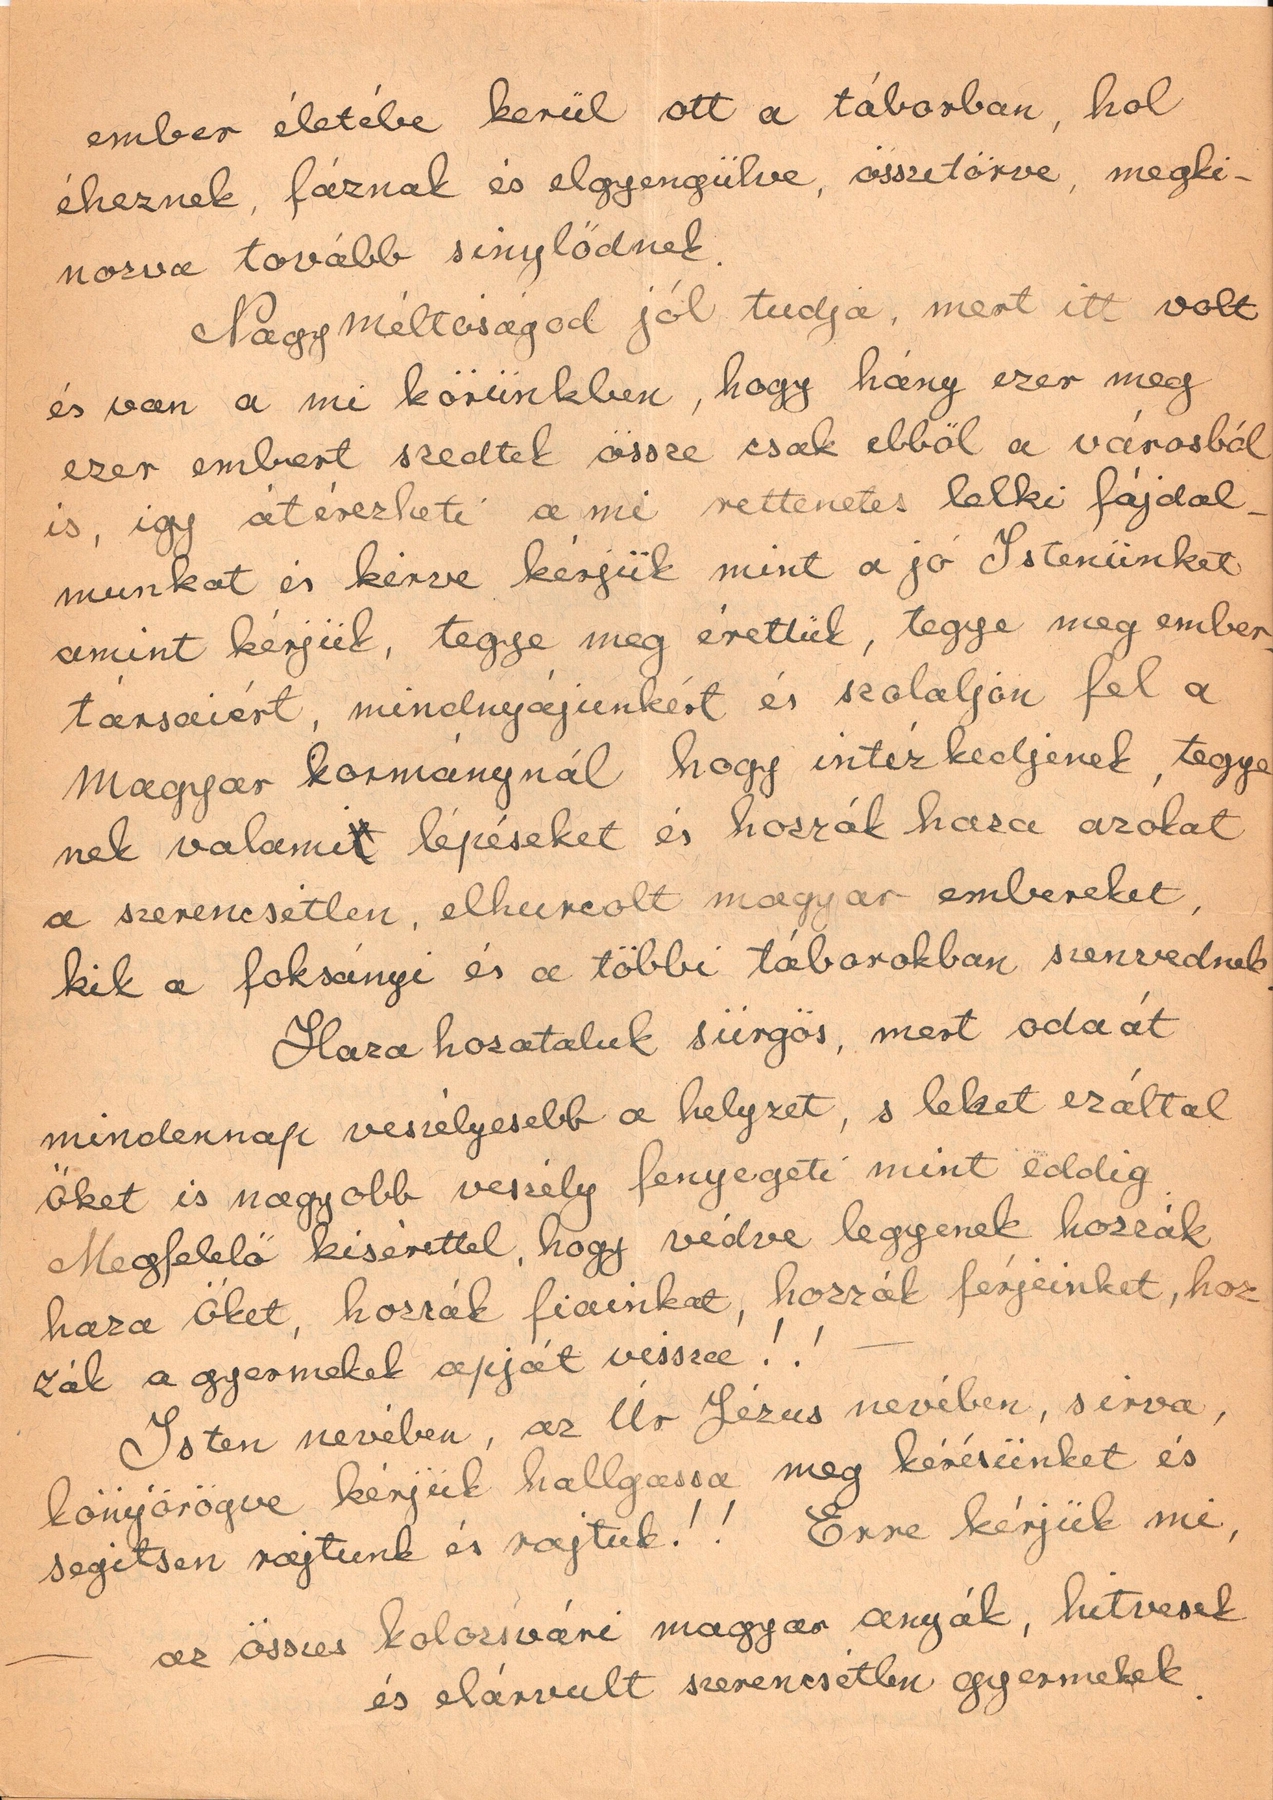 ember életébe kerül ott a táborban, hol
éheznek, fáznak és elgyengülve, összetörve, megki-
nozva tovább sinylődnek.
Nagyméltóságod jól tudja, mert itt volt
és van a mi körünkben, hogy hány ezer meg
ezer embert szedtek össze csak ebből a városból
is, igy átérezheti a mi rettenetes lelki fájdal-
munkat és kérve kérjük mint a jó Istenünket
amint kérjük, tegye meg érettük, tegye meg ember-
társaiért, mindnyájunkért és szolaljon fel a
Magyar kormánynál hogy intézkedjenek, tegye
nek valami lépéseket és hozzák haza azokat
a szerencsétlen, elhurcolt magyar embereket,
kik a foksányi és a többi táborokban szenvednek.
Haza hozataluk sürgös, mert odaát
mindennap veszélyesebb a helyzet, s lehet ezáltal
őket is nagyobb veszély fenyegeti mint eddig.
Megfelelő kisérettel, hogy védve legyenek hozzák
haza őket, hozzák fiainkat, hozzák férjeinket, hoz
zák a gyermekek apját vissza!! —
Isten nevében, az Úr Jézus nevében, sirva,
könyörögve kérjük hallgassa meg kérésünket és
segitsen rajtunk és rajtuk!! Erre kérjük mi,
— az összes kolozsvári magyar anyák, hitvesek
és elárvult szerencsétlen gyermekek.